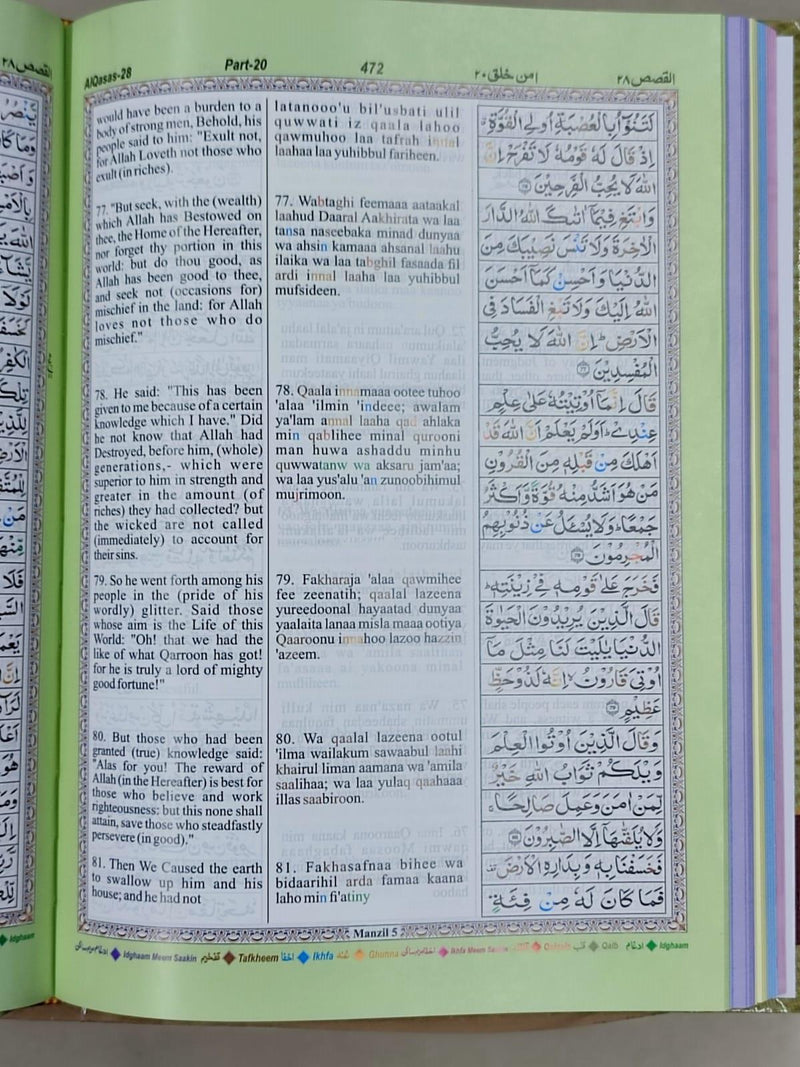 AlQasas-28 Part-20 472 امن خلق ٢٠ القصص ٢٨
would have been a burden to a
body of strong men, Behold, his
people said to him: "Exult not,
for Allah Loveth not those who
exult (in riches).
77. "But seek, with the (wealth)
which Allah has Bestowed on
thee, the Home of the Hereafter,
nor forget thy portion in this
world: but do thou good, as
Allah has been good to thee,
and seek not (occasions for)
mischief in the land: for Allah
loves not those who do
mischief."
78. He said: "This has been
given to me because of a certain
knowledge which I have." Did
he not know that Allah had
Destroyed, before him, (whole)
generations,- which were
superior to him in strength and
greater in the amount (of
riches) they had collected? but
the wicked are not called
(immediately) to account for
their sins.
79. So he went forth among his
people in the (pride of his
wordly) glitter. Said those
whose aim is the Life of this
World: "Oh! that we had the
like of what Qarroon has got!
for he is truly a lord of mighty
good fortune!"
80. But those who had been
granted (true) knowledge said:
"Alas for you! The reward of
Allah (in the Hereafter) is best for
those who believe and work
righteousness: but this none shall
attain, save those who steadfastly
persevere (in good)."
81. Then We Caused the earth
to swallow up him and his
house; and he had not
latanooo'u bil'usbati ulil
quwwati iz qaala lahoo
qawmuhoo laa tafrah innal
laahaa laa yuhibbul fariheen.
77. Wabtaghi feemaaa aataakal
laahud Daaral Aakhirata wa laa
tansa naseebaka minad dunyaa
wa ahsin kamaaa ahsanal laahu
ilaika wa laa tabghil fasaada fil
ardi innal laaha laa yuhibbul
mufsideen.
78. Qaala innamaaa ootee tuhoo
'alaa 'ilmin 'indeee; awalam
ya'lam annal laaha qad ahlaka
min qablihee minal qurooni
man huwa ashaddu minhu
quwwatanw wa aksaru jam'aa;
wa laa yus'alu 'an zunoobihimul
mujrimoon.
79. Fakharaja 'alaa qawmihee
fee zeenatih; qaalal lazeena
yureedoonal hayaatad dunyaa
yaalaita lanaa misla maaa ootiya
Qaaroonu innahoo lazoo hazzin
'azeem.
80. Wa qaalal lazeena ootul
'ilma wailakum sawaabul laahi
khairul liman aamana wa 'amila
saalihaa; wa laa yulaq qaahaaa
illas saabiroon.
81. Fakhasafnaa bihee wa
bidaarihil arda famaa kaana
laho min fi'atiny
لَتَنُوْٓاُ بِالْعُصْبَةِ اُولِی الْقُوَّةِ
اِذْ قَالَ لَهٗ قَوْمُهٗ لَا تَفْرَحْ اِنَّ
اللّٰهَ لَا يُحِبُّ الْفَرِحِيْنَ ۝۷۶
وَابْتَغِ فِيْمَآ اٰتٰىكَ اللّٰهُ الدَّارَ
الْاٰخِرَةَ وَلَا تَنْسَ نَصِيْبَكَ مِنَ
الدُّنْيَا وَاَحْسِنْ كَمَآ اَحْسَنَ
اللّٰهُ اِلَيْكَ وَلَا تَبْغِ الْفَسَادَ فِی
الْاَرْضِ ؕ اِنَّ اللّٰهَ لَا يُحِبُّ
الْمُفْسِدِيْنَ ۝۷۷
قَالَ اِنَّمَآ اُوْتِيْتُهٗ عَلٰى عِلْمٍ
عِنْدِیْ ؕ اَوَلَمْ يَعْلَمْ اَنَّ اللّٰهَ قَدْ
اَهْلَكَ مِنْ قَبْلِهٖ مِنَ الْقُرُوْنِ
مَنْ هُوَ اَشَدُّ مِنْهُ قُوَّةً وَّاَكْثَرُ
جَمْعًا ؕ وَلَا يُسْـَٔلُ عَنْ ذُنُوْبِهِمُ
الْمُجْرِمُوْنَ ۝۷۸
فَخَرَجَ عَلٰى قَوْمِهٖ فِیْ زِيْنَتِهٖ ؕ
قَالَ الَّذِيْنَ يُرِيْدُوْنَ الْحَيٰوةَ
الدُّنْيَا يٰلَيْتَ لَنَا مِثْلَ مَآ
اُوْتِیَ قَارُوْنُ ۙ اِنَّهٗ لَذُوْ حَظٍّ
عَظِيْمٍ ۝۷۹
وَقَالَ الَّذِيْنَ اُوْتُوا الْعِلْمَ
وَيْلَكُمْ ثَوَابُ اللّٰهِ خَيْرٌ
لِّمَنْ اٰمَنَ وَعَمِلَ صَالِحًا ۚ
وَلَا يُلَقّٰىهَآ اِلَّا الصّٰبِرُوْنَ ۝۸۰
فَخَسَفْنَا بِهٖ وَبِدَارِهِ الْاَرْضَ ۟
فَمَا كَانَ لَهٗ مِنْ فِئَةٍ
Manzil 5
Idghaam Meem Saakin تفخیم Tafkheem اخفا Ikhfa غنه Ghunna Ikhfa Meem Saakin قلقله Qalqala قلب Qalb ادغام Idghaam